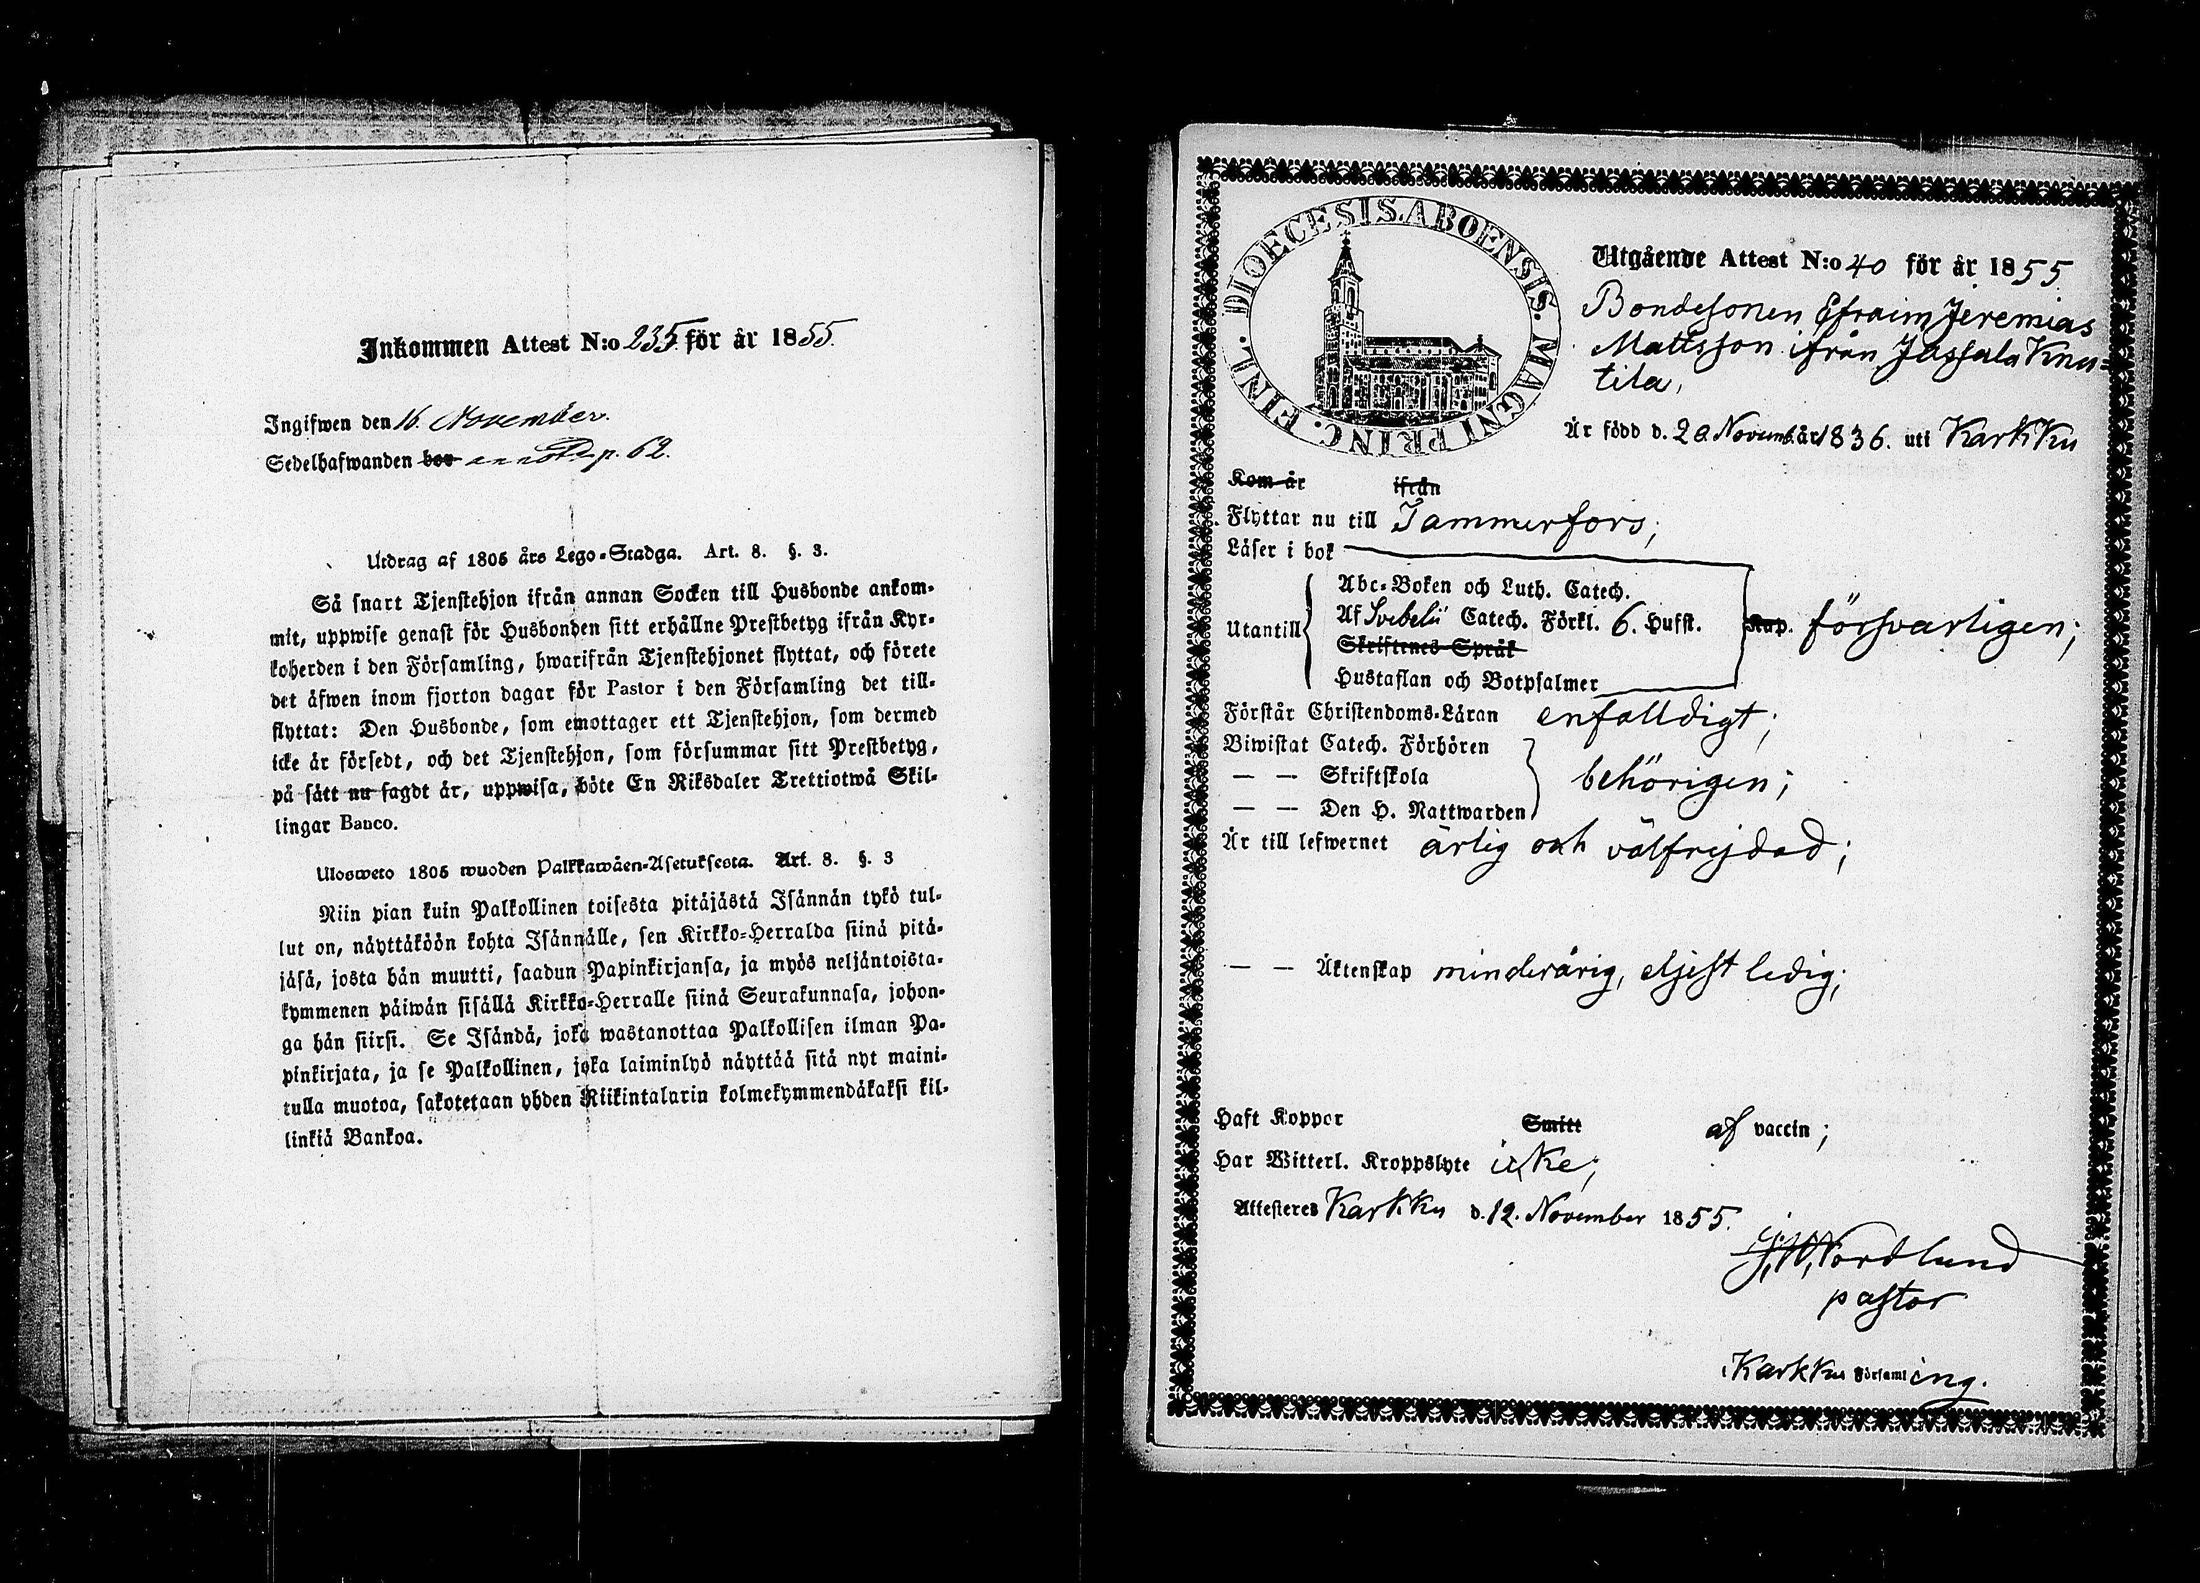 Inkommen Attest N:o 235 för år 1855.
Ingifwen den 16. November.
Sedelhafwanden bor annot. p. 62.
Utdrag af 1805 års Lego-Stadga. Art. 8. §. 3.
Så snart Tjenstehjon ifrån annan Socken till Husbonde ankom-
mit, uppwise genast för Husbonden sitt erhållne Prestbetyg ifrån Kyr-
koherden i den Församling, hwarifrån Tjenstehjonet flyttat, och förete
det äfwen inom fjorton dagar för Pastor i den Församling det till-
flyttat: Den Husbonde, som emottager ett Tjenstehjon, som dermed
icke är försedt, och det Tjenstehjon, som försummar sitt Prestbetyg,
på sätt nu sagdt är, uppwisa, böte En Riksdaler Trettiotwå Skil-
lingar Banco.
Ulosweto 1805 wuoden Palkkawäen-Asetuksesta. Art. 8. §. 3
Niin pian kuin Palkollinen toisesta pitäjästä Isännän tykö tul-
lut on, näyttäköön kohta Isännälle, sen Kirkko-Herralda siinä pitä-
jäsä, josta hän muutti, saadun Papinkirjansa, ja myös neljäntoista-
kymmenen päiwän sisällä Kirkko-Herralle siinä Seurakunnasa, johon-
ga hän siirsi. Se Isändä, joka wastanottaa Palkollisen ilman Pa-
pinkirjata, ja se Palkollinen, joka laiminlyö näyttää sitä nyt maini-
tulla muotoa, sakotetaan yhden Riikintalarin kolmekymmendäkaksi kil-
linkiä Bankoa.
DIOECESIS. ABOENSIS. MAGNI PRINC. FINL.
Utgående Attest N:o 40 för år 1855
Bondesonen Efraim Jeremias
Mattsson ifrån Jassala Knu-
tila,
Är född d. 20. Novemb. år 1836. uti Karkku
Kom år ifrån
Flyttar nu till Tammerfors;
Läser i bok
Utantill
Abc-Boken och Luth. Catech.
Af Svebelii Catech. Förkl. 6. Hufst. Kap. försvarligen;
Skriftenes Språk
Hustaflan och Botpsalmer
Förstår Christendoms-Läran enfalldigt;
Biwistat Catech. Förhören
— — Skriftskola behörigen;
— — Den H. Nattwarden
Är till lefwernet ärlig och välfrejdad;
— — Äktenskap minderårig, eljest ledig;
Haft Koppor Smitt af vaccin;
Har Witterl. Kroppslyte icke;
Attesteres Karkku d. 12. November 1855.
J. W. Nordlund
pastor
i Karkku Församling.